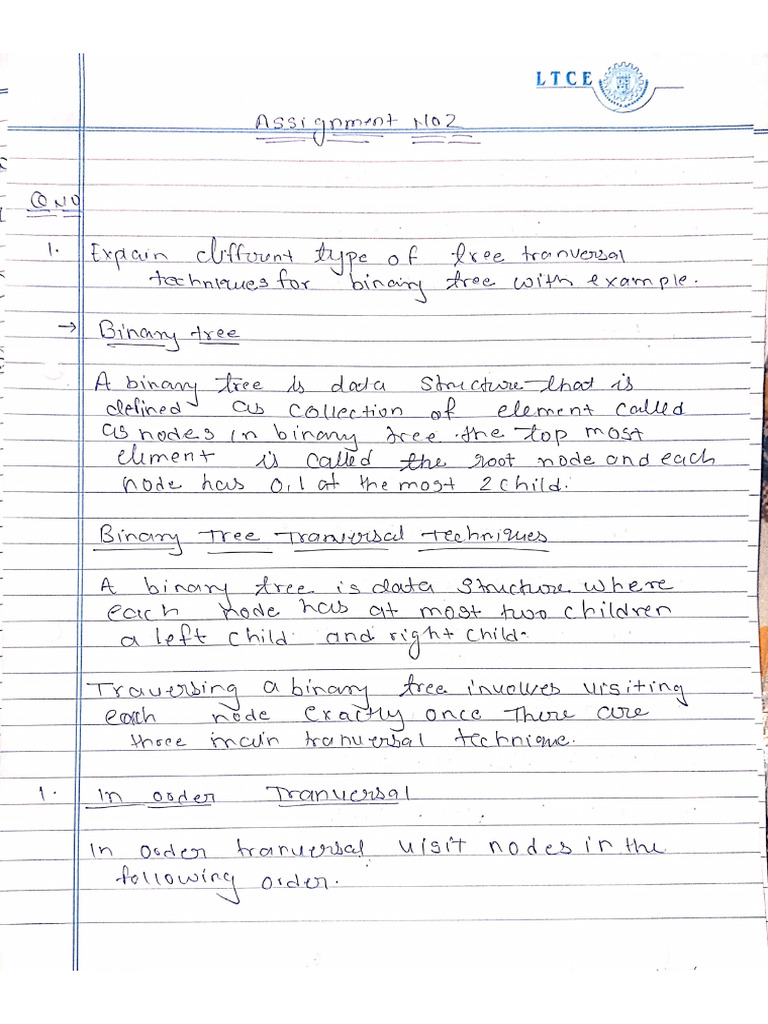 LTCE
Assignment No2
Q NO
1. Expain diffount type of tree tranversal
techniques for binary tree with example.
→ Binary tree
A binary tree is data structure that is
defined as collection of element called
as nodes in binary tree. the top most
element is called the root node and each
node has 0,1 at the most 2 child.
Binary Tree Tranversal Techniques
A binary tree is data structure where
each node has at most two children
a left child and right child.
Traversing a binary tree involves visiting
each node exactly once There are
three main tranversal technique.
1. In order Tranversal
In order tranversal visit nodes in the
following order.